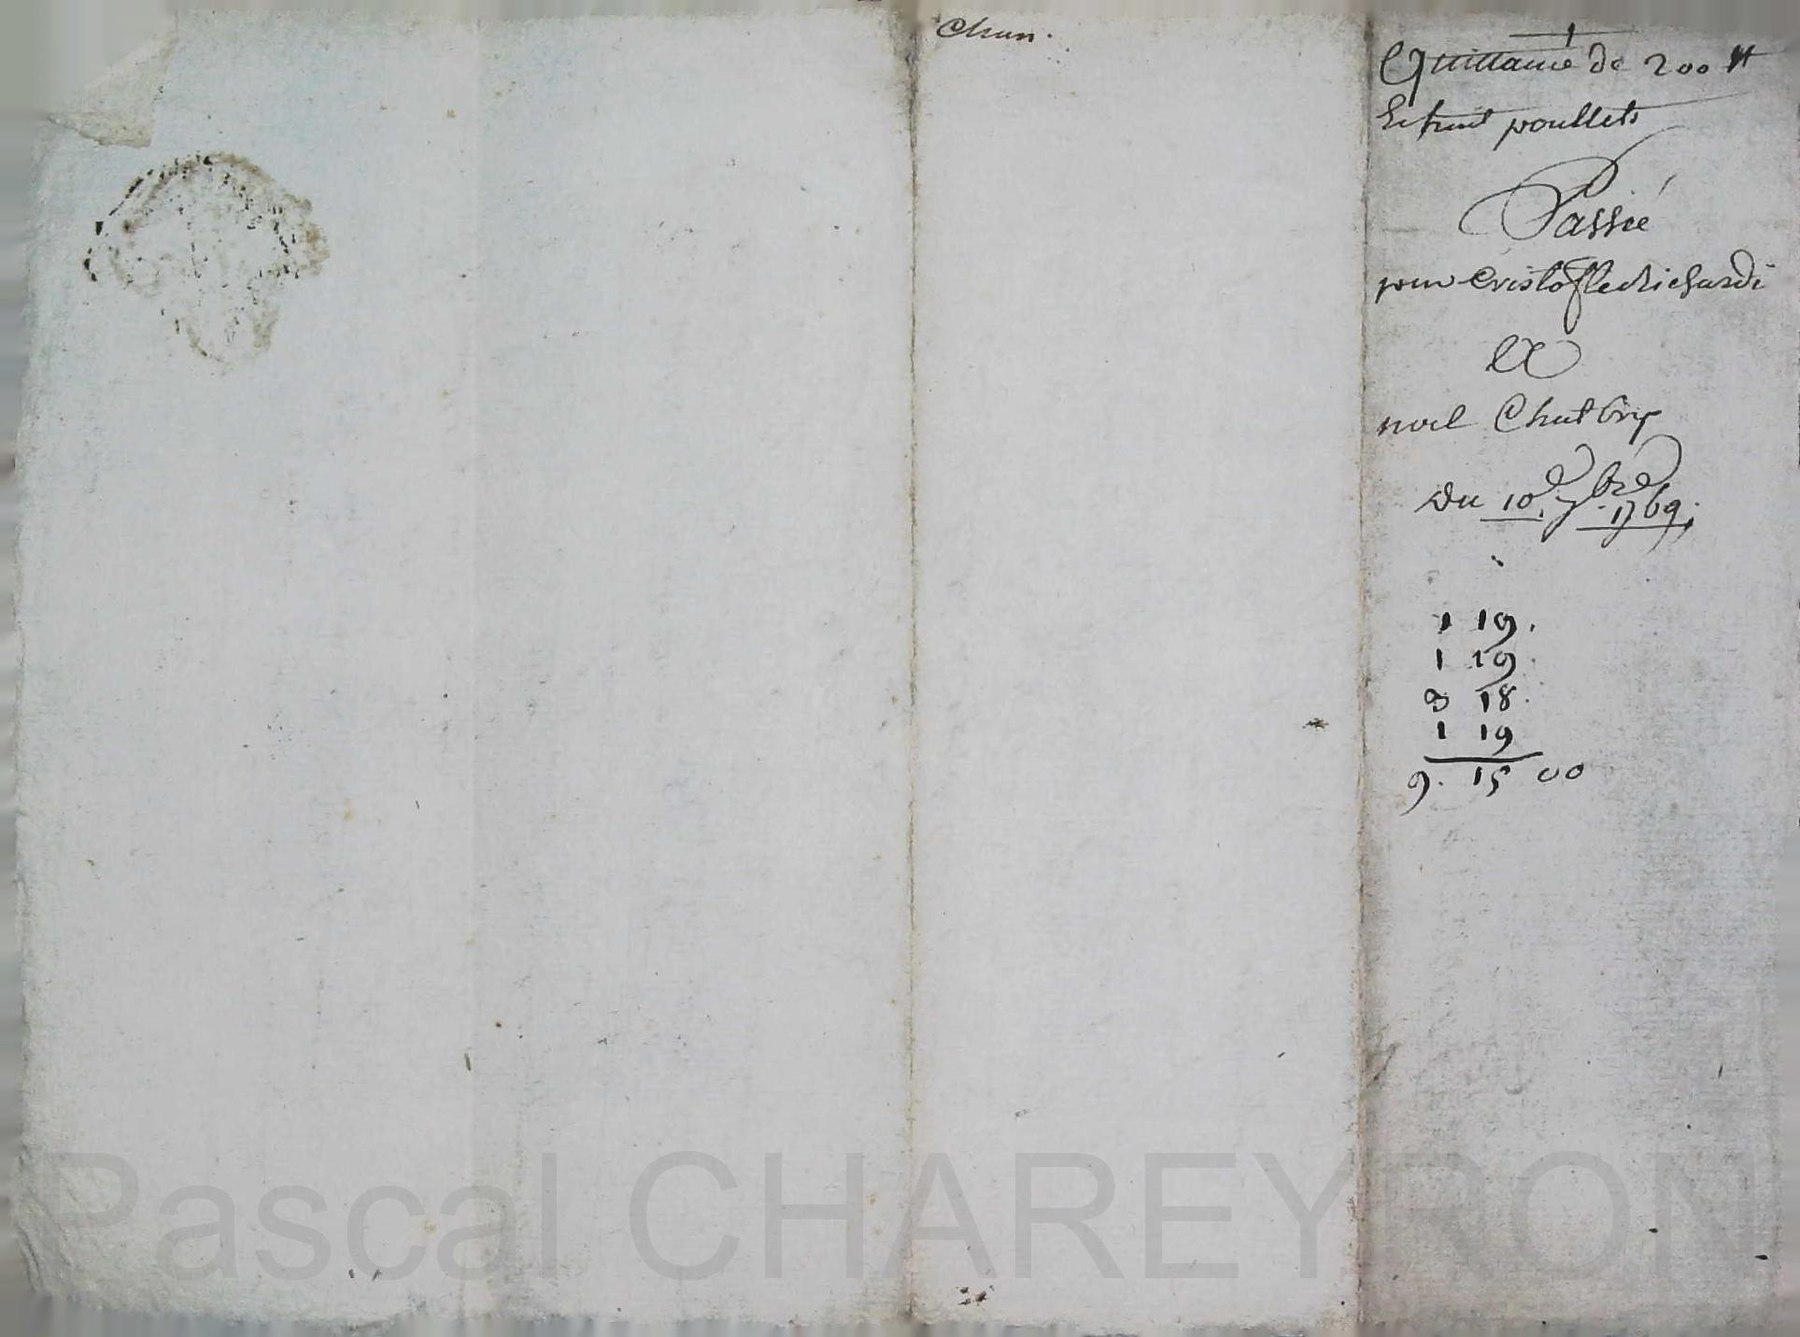 Chan.
Quittance de 200 ₶
Et huit poullets
Passée
pour Cristofle Richard
Et
noel Chutbry
Du 10e 7bre 1769.
1 19.
1 19.
3 18.
1 19
9. 15 00
Pascal CHAREYRON